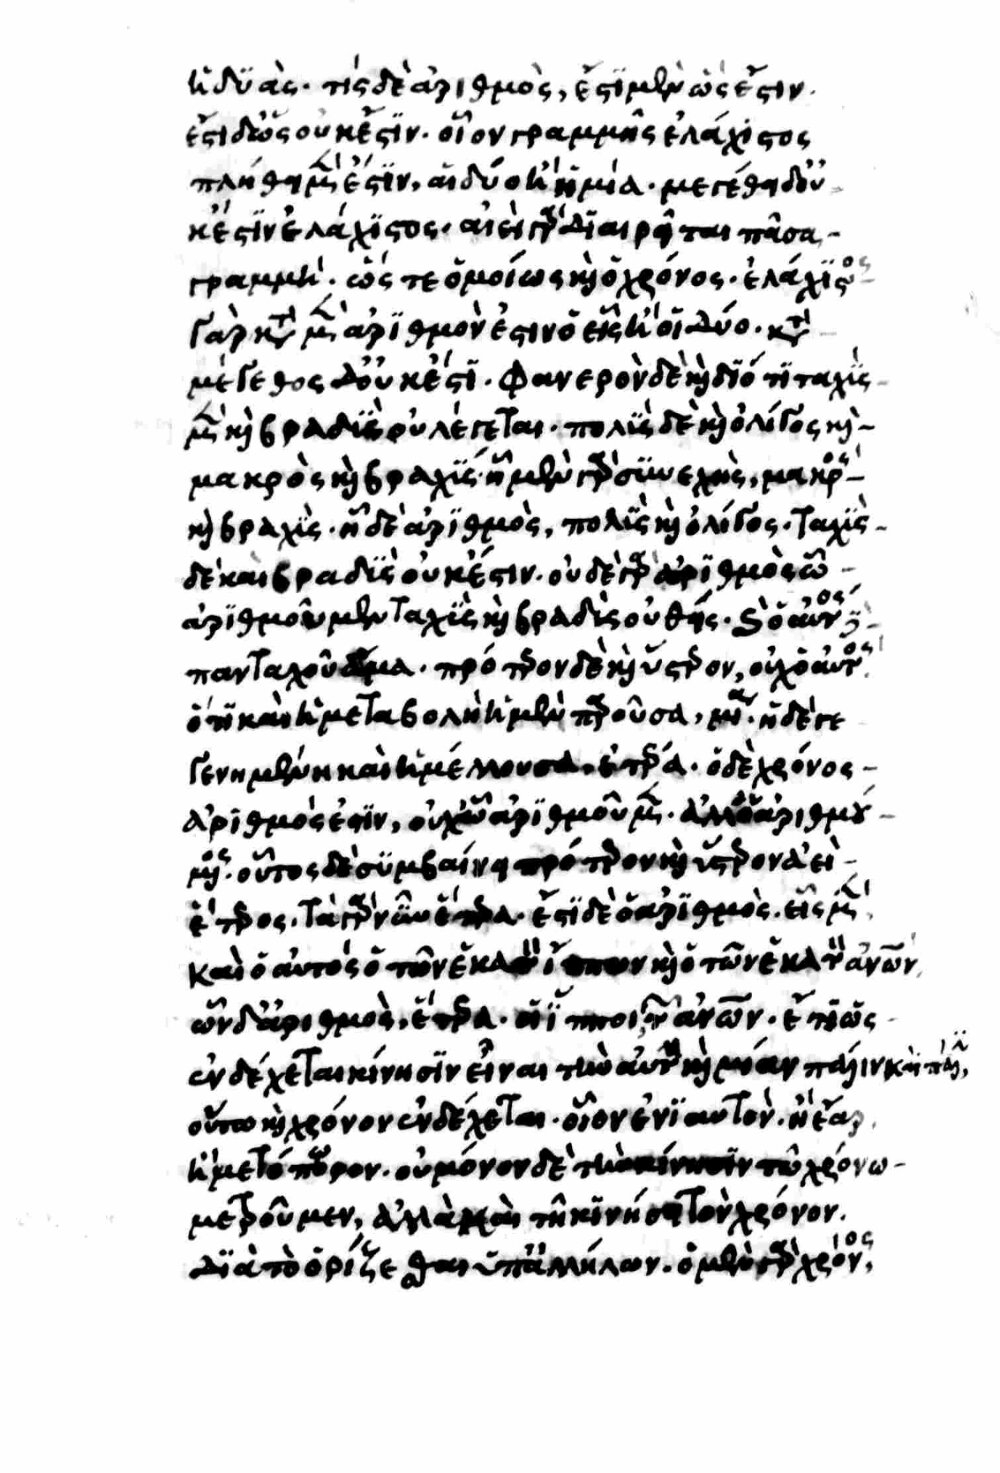 ἡ δϋὰς· τὶς δὲ ἀριθμὸς, ἔστι μὲν ὡς ἔστιν·
ἔστι δ' ὡς οὐκ ἔστϊν· οἷον γραμμῆς ἐλάχιστος
πλήθει μέν ἐστϊν, αἱ δύο ἢ ἡ μία· μεγέθει δ' οὐ
κ ἔστϊν ἐλάχϊστος· ἀιεὶ γὰρ διαιρεῖται πᾶσα
γραμμή· ὥστε ὁμοίως καὶ ὁ χρόνος· ἐλάχϊστος
γὰρ κατὰ μὲν ἀρϊθμὸν ἐστιν ὁ εἷς ἢ οἱ δύο· κατὰ
μέγεθος δ' οὐκ ἔστϊ· φανερὸν δὲ καὶ δϊότϊ ταχὺς
μὲν καὶ βραδὺς οὐ λέγεται· πολὺς δὲ καὶ ὀλίγος καὶ
μακρὸς καὶ βραχὺς· ᾗ μὲν γὰρ συνεχὴς, μακρὸς
καὶ βραχὺς· ᾗ δὲ ἀρϊθμὸς, πολὺς καὶ ὀλίγος· ταχὺς
δὲ καὶ βραδὺς οὐκ ἔστιν· οὐδὲ γὰρ ἀρϊθμὸς ᾧ
ἀρϊθμοῦμεν ταχὺς καὶ βραδὺς οὐθείς· καὶ ὁ αὐτὸς δὲ
πανταχοῦ ἅμα· πρότερον δὲ καὶ ὕστερον, οὐχ ὁ αὐτὸς
ὅτϊ καὶ ἡ μεταβολὴ ἡ μὲν παροῦσα, μία· ἡ δὲ γε
γενημένη καὶ ἡ μέλλουσα, ἑτέρα· ὁ δὲ χρόνος
ἀρϊθμὸς ἐστϊν, οὐχ ᾧ ἀρϊθμοῦμεν· ἀλλ' ὁ ἀριθμού
μενος· οὗτος δὲ συμβαίνει πρότερον καὶ ὕστερον ἀεὶ
ἕτερος· τὰ γὰρ νῦν ἕτερα· ἔστϊ δὲ ὁ ἀρϊθμὸς· εἷς μὲν
καὶ ὁ αὐτός ὁ τῶν ἑκατὸν ἵππων καὶ ὁ τῶν ἑκατὸν ἀνθρώπων,
ὧν δ' ἀριθμὸς, ἕτερα· οἱ ἵπποι τῶν ἀνθρώπων· ἔτι ὡς
ἐνδέχεται κίνησϊν εἶναι τὴν αὐτὴν καὶ μίαν πάλιν καὶ πάλιν,
οὕτω καὶ χρόνον ἐνδέχεται· οἷον ἐνϊαυτὸν· ἢ ἔαρ
ἢ μετόπωρον· οὐ μόνον δὲ τὴν κίνησϊν τῷ χρόνω
μετροῦμεν, ἀλλὰ καὶ τῇ κϊνήσει τὸν χρόνον.
Δϊὰ τὸ ὁρίζεσθαι ὑπ' ἀλλήλων· ὁ μὲν γὰρ χρόνος,